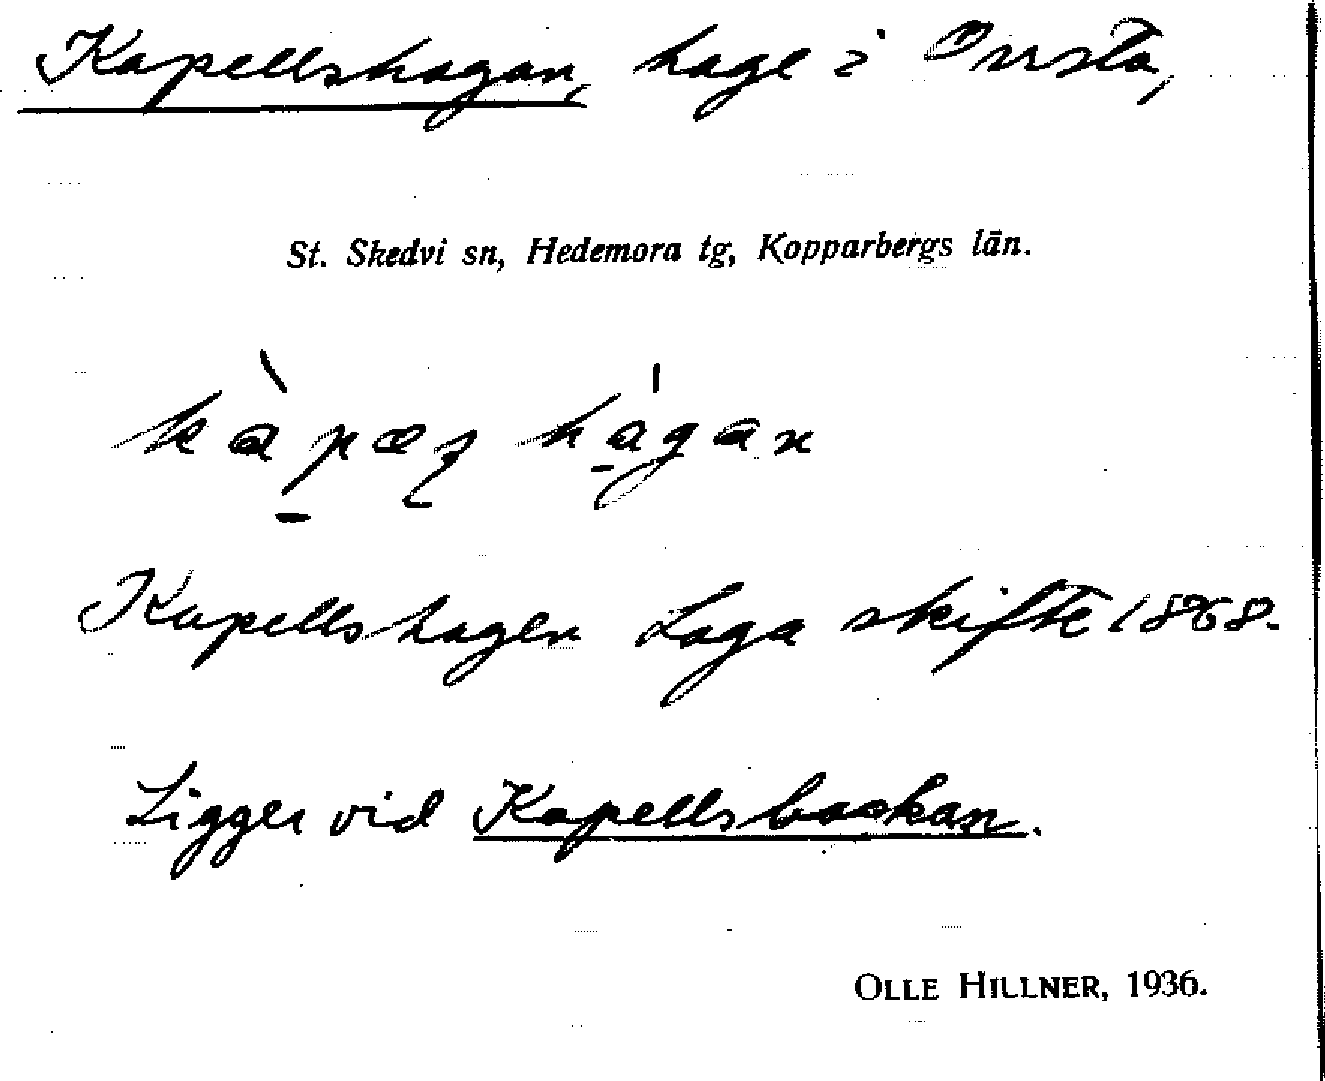 Kapellshagan, hage i Onsta,
St. Skedvi sn, Hedemora tg, Kopparbergs län.
Kapellshagen Laga skifte 1868.
Ligger vid Kapellsbackan.
OLLE HILLNER, 1936.